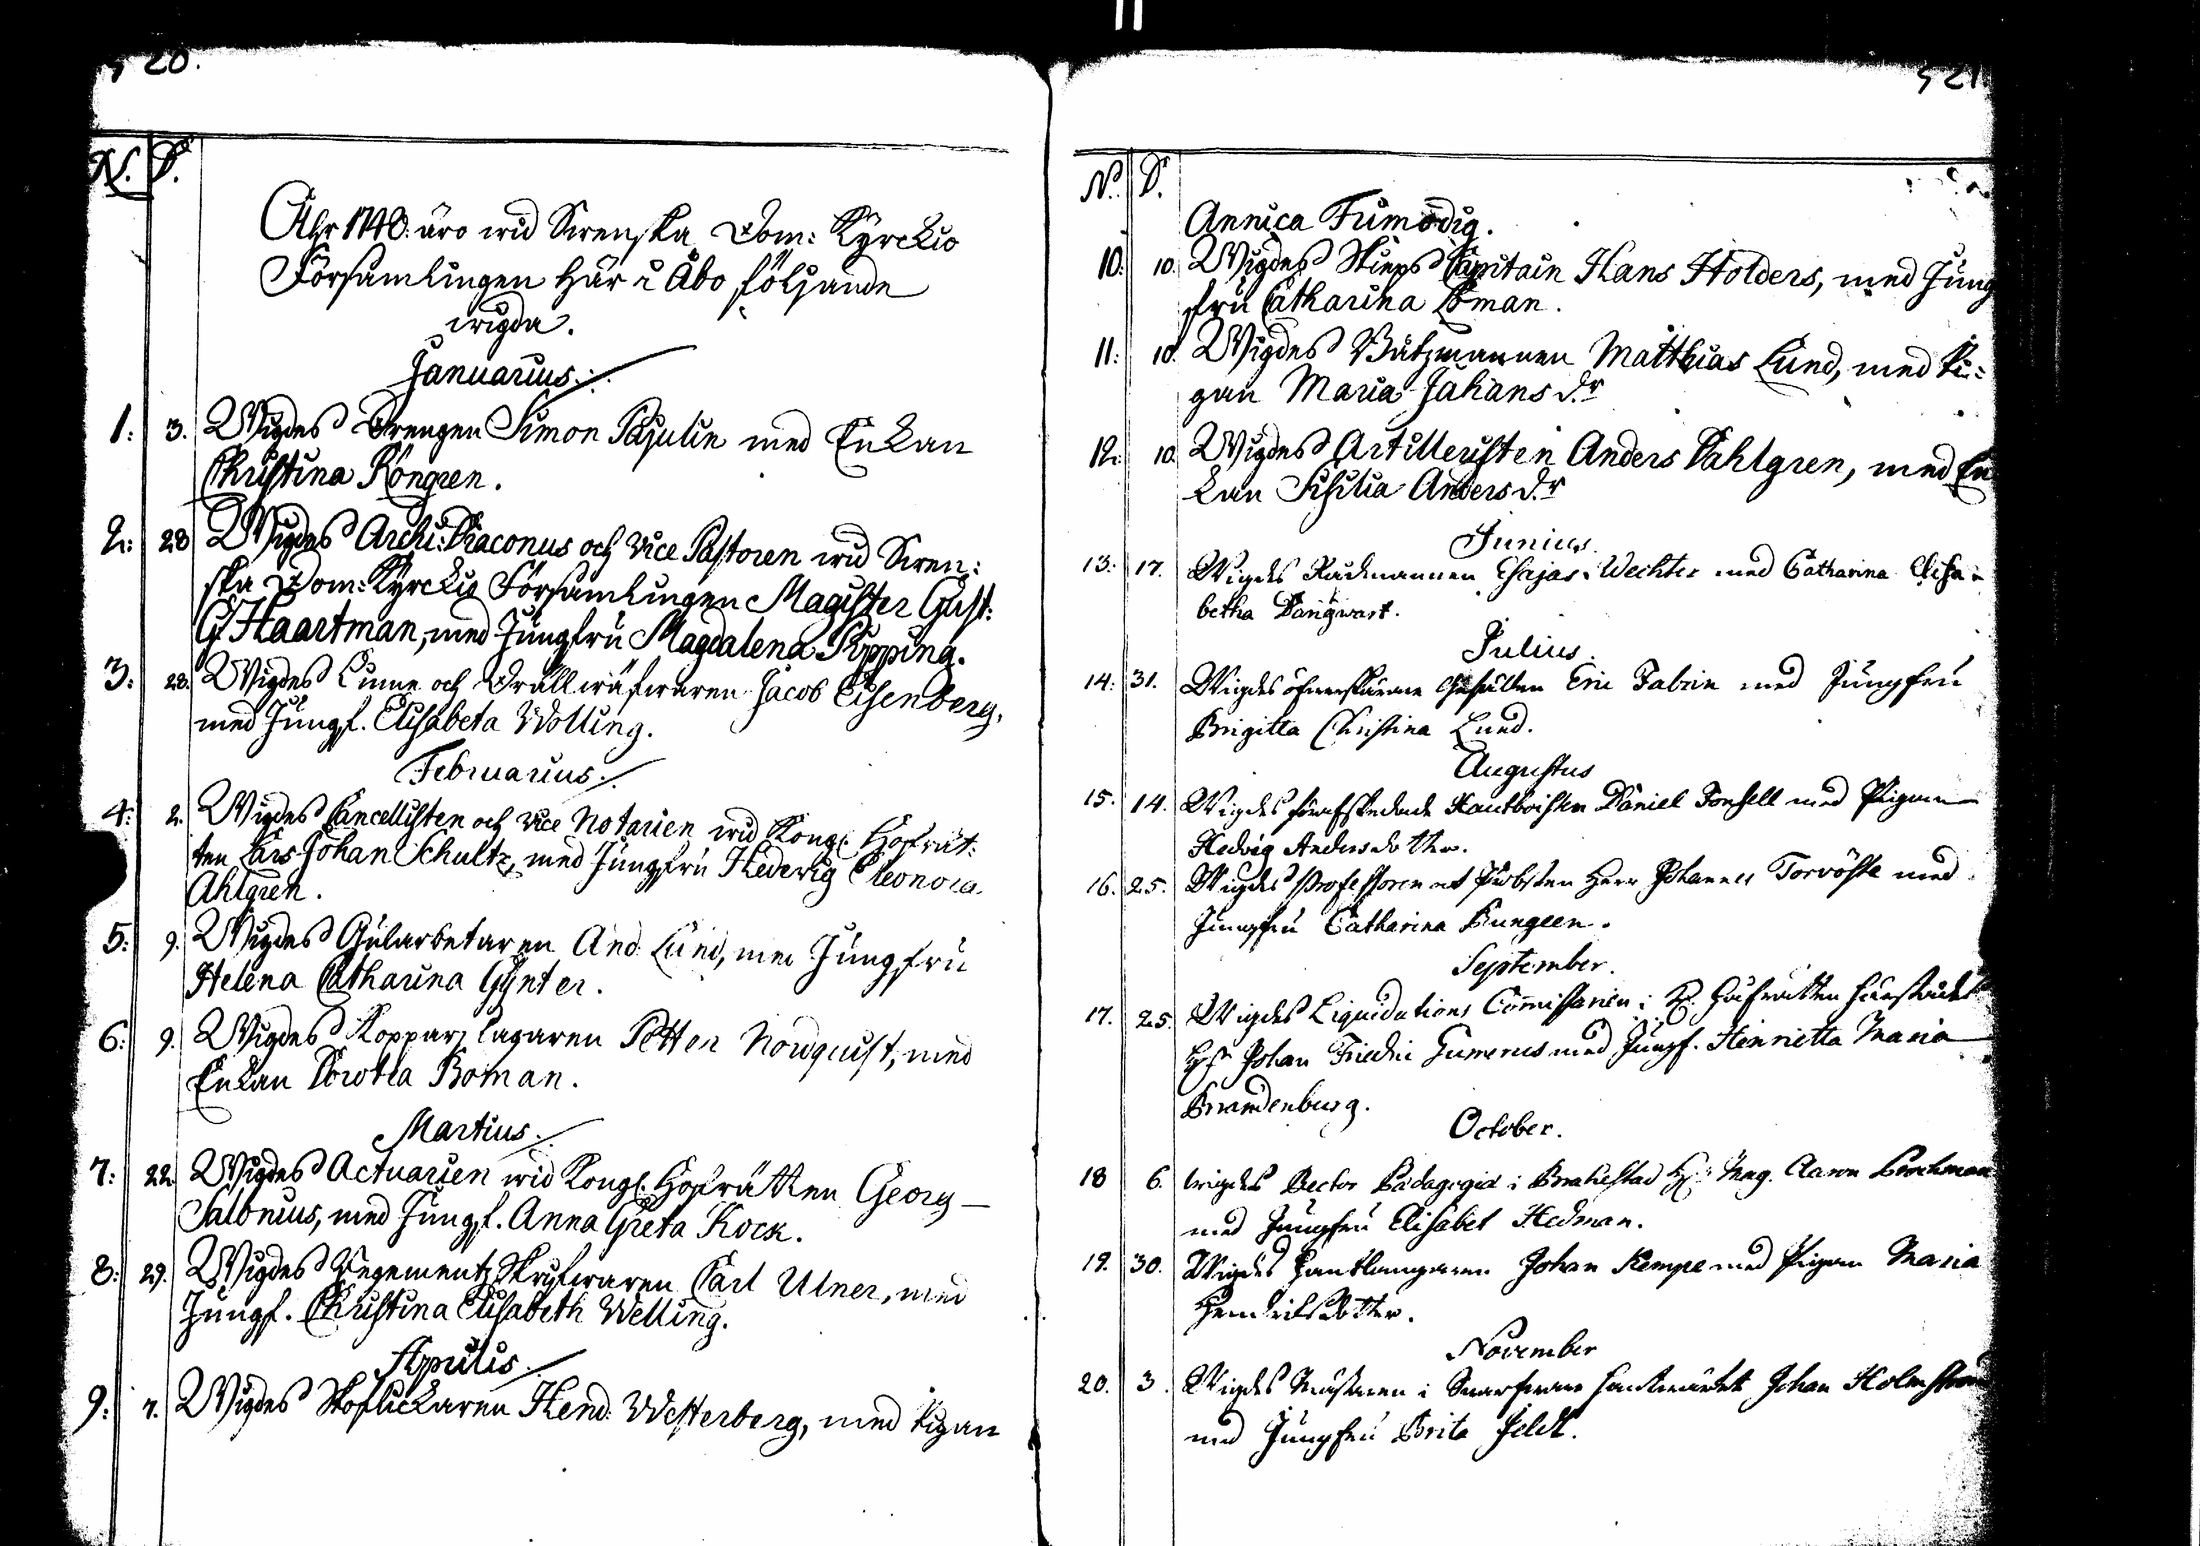 520.
N. D.
Åhr 1740. äro wid Swenska Dom: Kyrckio
Församlingen här i Åbo följande
wigda.
Januarius.
1: 3. Wigdes Drengen Simon Pajulin med Enkan
Christina Kongren.
2: 28 Wigdes Archi:Diaconus och vice Pastoren wid Swen:
ska Dom: Kyrckio Församlingen Magister Gust:
G. Haartman, med Jungfru Magdalena Pipping.
3: 28. Wigdes Linne och Drällwäfwaren Jacob Eisenberg,
med Jungf. Elisabeta Wolling.
Februarius.
4: 2. Wigdes Cancellisten och vice Notarien wid Kongl. Hofrät:
ten Lars Johan Schultz, med Jungfru Hedewig Eleonora
Ahlgren.
5: 9. Wigdes Gularbetaren And: Lund, med Jungfru
Helena Catharina Gynter.
6: 9. Wigdes Kopparslagaren Petter Nordquist, med
Enkan Dorotea Boman.
Martius.
7: 22. Wigdes Actuarien wid Kongl. Hofrätten Georg
Salonius, med Jungf. Anna Greta Kock.
8: 29. Wigdes Regementz Skrifwaren Carl Ulner, med
Jungf. Christina Elisabeth Welling.
Aprilis.
9: 7. Wigdes Skoflickaren Hend: Westerberg, med Pigan
521
N. D.
Annica Fumodig.
10: 10. Wigdes Skieps Capitain Hans Holders, med Jung
fru Catharina Loman.
11: 10. Wigdes Båtzmannen Matthias Lund, med Pi:
gan Maria Johans dr
12: 10. Wigdes Artilleristen Anders Dahlgren, med En
kan Sisilia Anders dr
Junius.
13: 17. Wigdes Rådmannen Esajas Wechter med Catharina Elisa=
betha Dangwart.
Julius.
14: 31. Wigdes Gesällen Eric Fabrin med Jungfru
Brigitta Christina Lund.
Augustus
15. 14. Wigdes förafskedade Hautboisten Daniel Fonsell med Pigan
Hedvig Andersdotter.
16. 25. Wigdes Professoren och Probsten Herr Johannes Torvöste med
Jungfru Catharina Bungeen.
September.
17. 25. Wigdes Liquidations Commissarien i K. Hofrätten
Hr Johan Friedric Gumerus med Jungf. Henrietta Maria
Brandenburg.
October.
18 6. wigdes Rector Pædagogiæ i Brahestad Hr Mag. Aaron Borchman
med Jungfru Elisabet Hedman.
19. 30. Wigdes Hantlangaren Johan Kempe med Pigan Maria
Hendrichsdotter.
November
20. 3. Wigdes Mästaren i Swarfware handtwärket Johan Holmström
med Jungfru Brita Feldt.